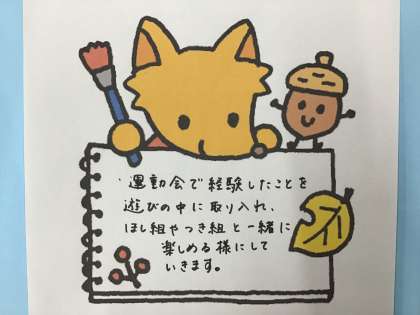 運動会で経験したことを
遊びの中に取り入れ、
ほし組やつき組と一緒に
楽しめる様にして
いきます。